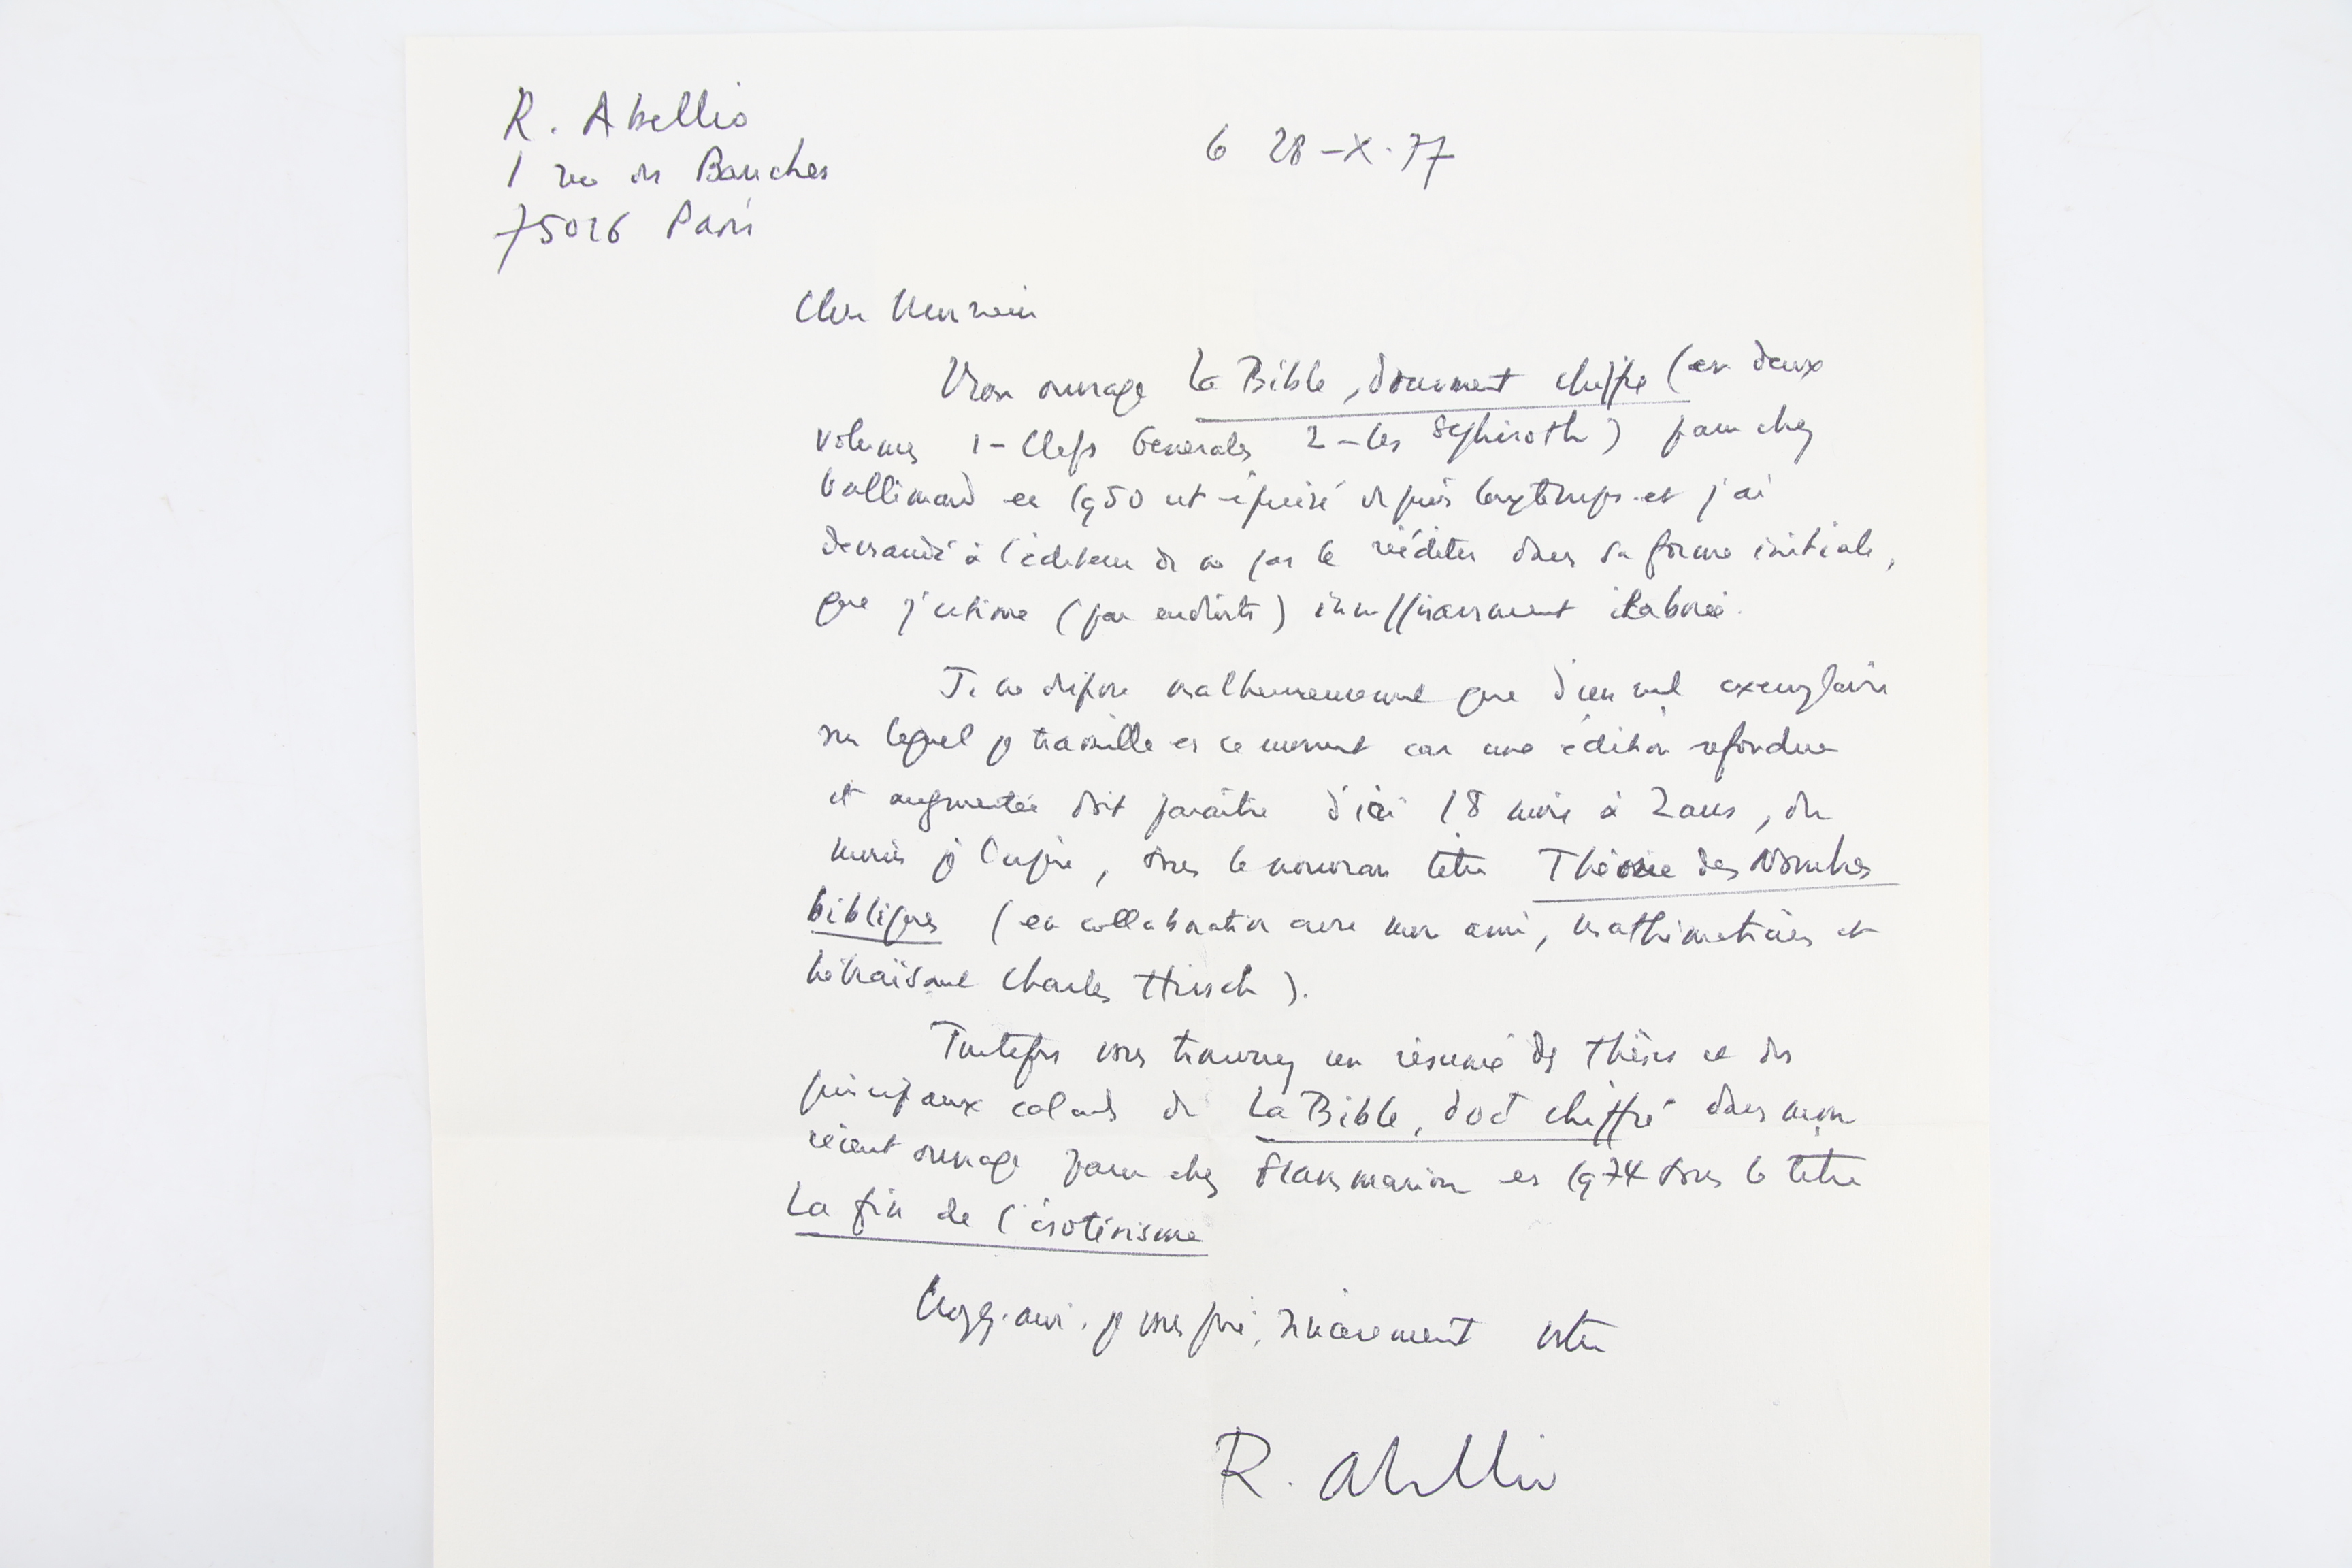 R. Abellio
1 rue des Bauches
75016 Paris
le 28-X-77
Cher Monsieur
Mon ouvrage La Bible, document chiffré (en deux
volumes 1- Clefs Générales 2- Les Sephiroth) paru chez
Gallimard en 1950 est épuisé depuis longtemps et j'ai
demandé à l'éditeur de ne pas le rééditer dans sa forme initiale,
que j'estime (par endroits) insuffisamment élaborée.
Je ne dispose malheureusement que d'un seul exemplaire
sur lequel je travaille en ce moment car une édition refondue
et augmentée doit paraître d'ici 18 mois à 2 ans, du
moins je l'espère, sous le nouveau titre Théorie des Nombres
bibliques (en collaboration avec mon ami, mathématicien et
hébraïsant Charles Hirsch).
Toutefois vous trouverez un résumé des thèses et des
principaux calculs de La Bible, doct chiffré dans mon
récent ouvrage paru chez Flammarion en 1974 sous le titre
La fin de l'ésotérisme
je vous prie, sincèrement votre
R. Abellio